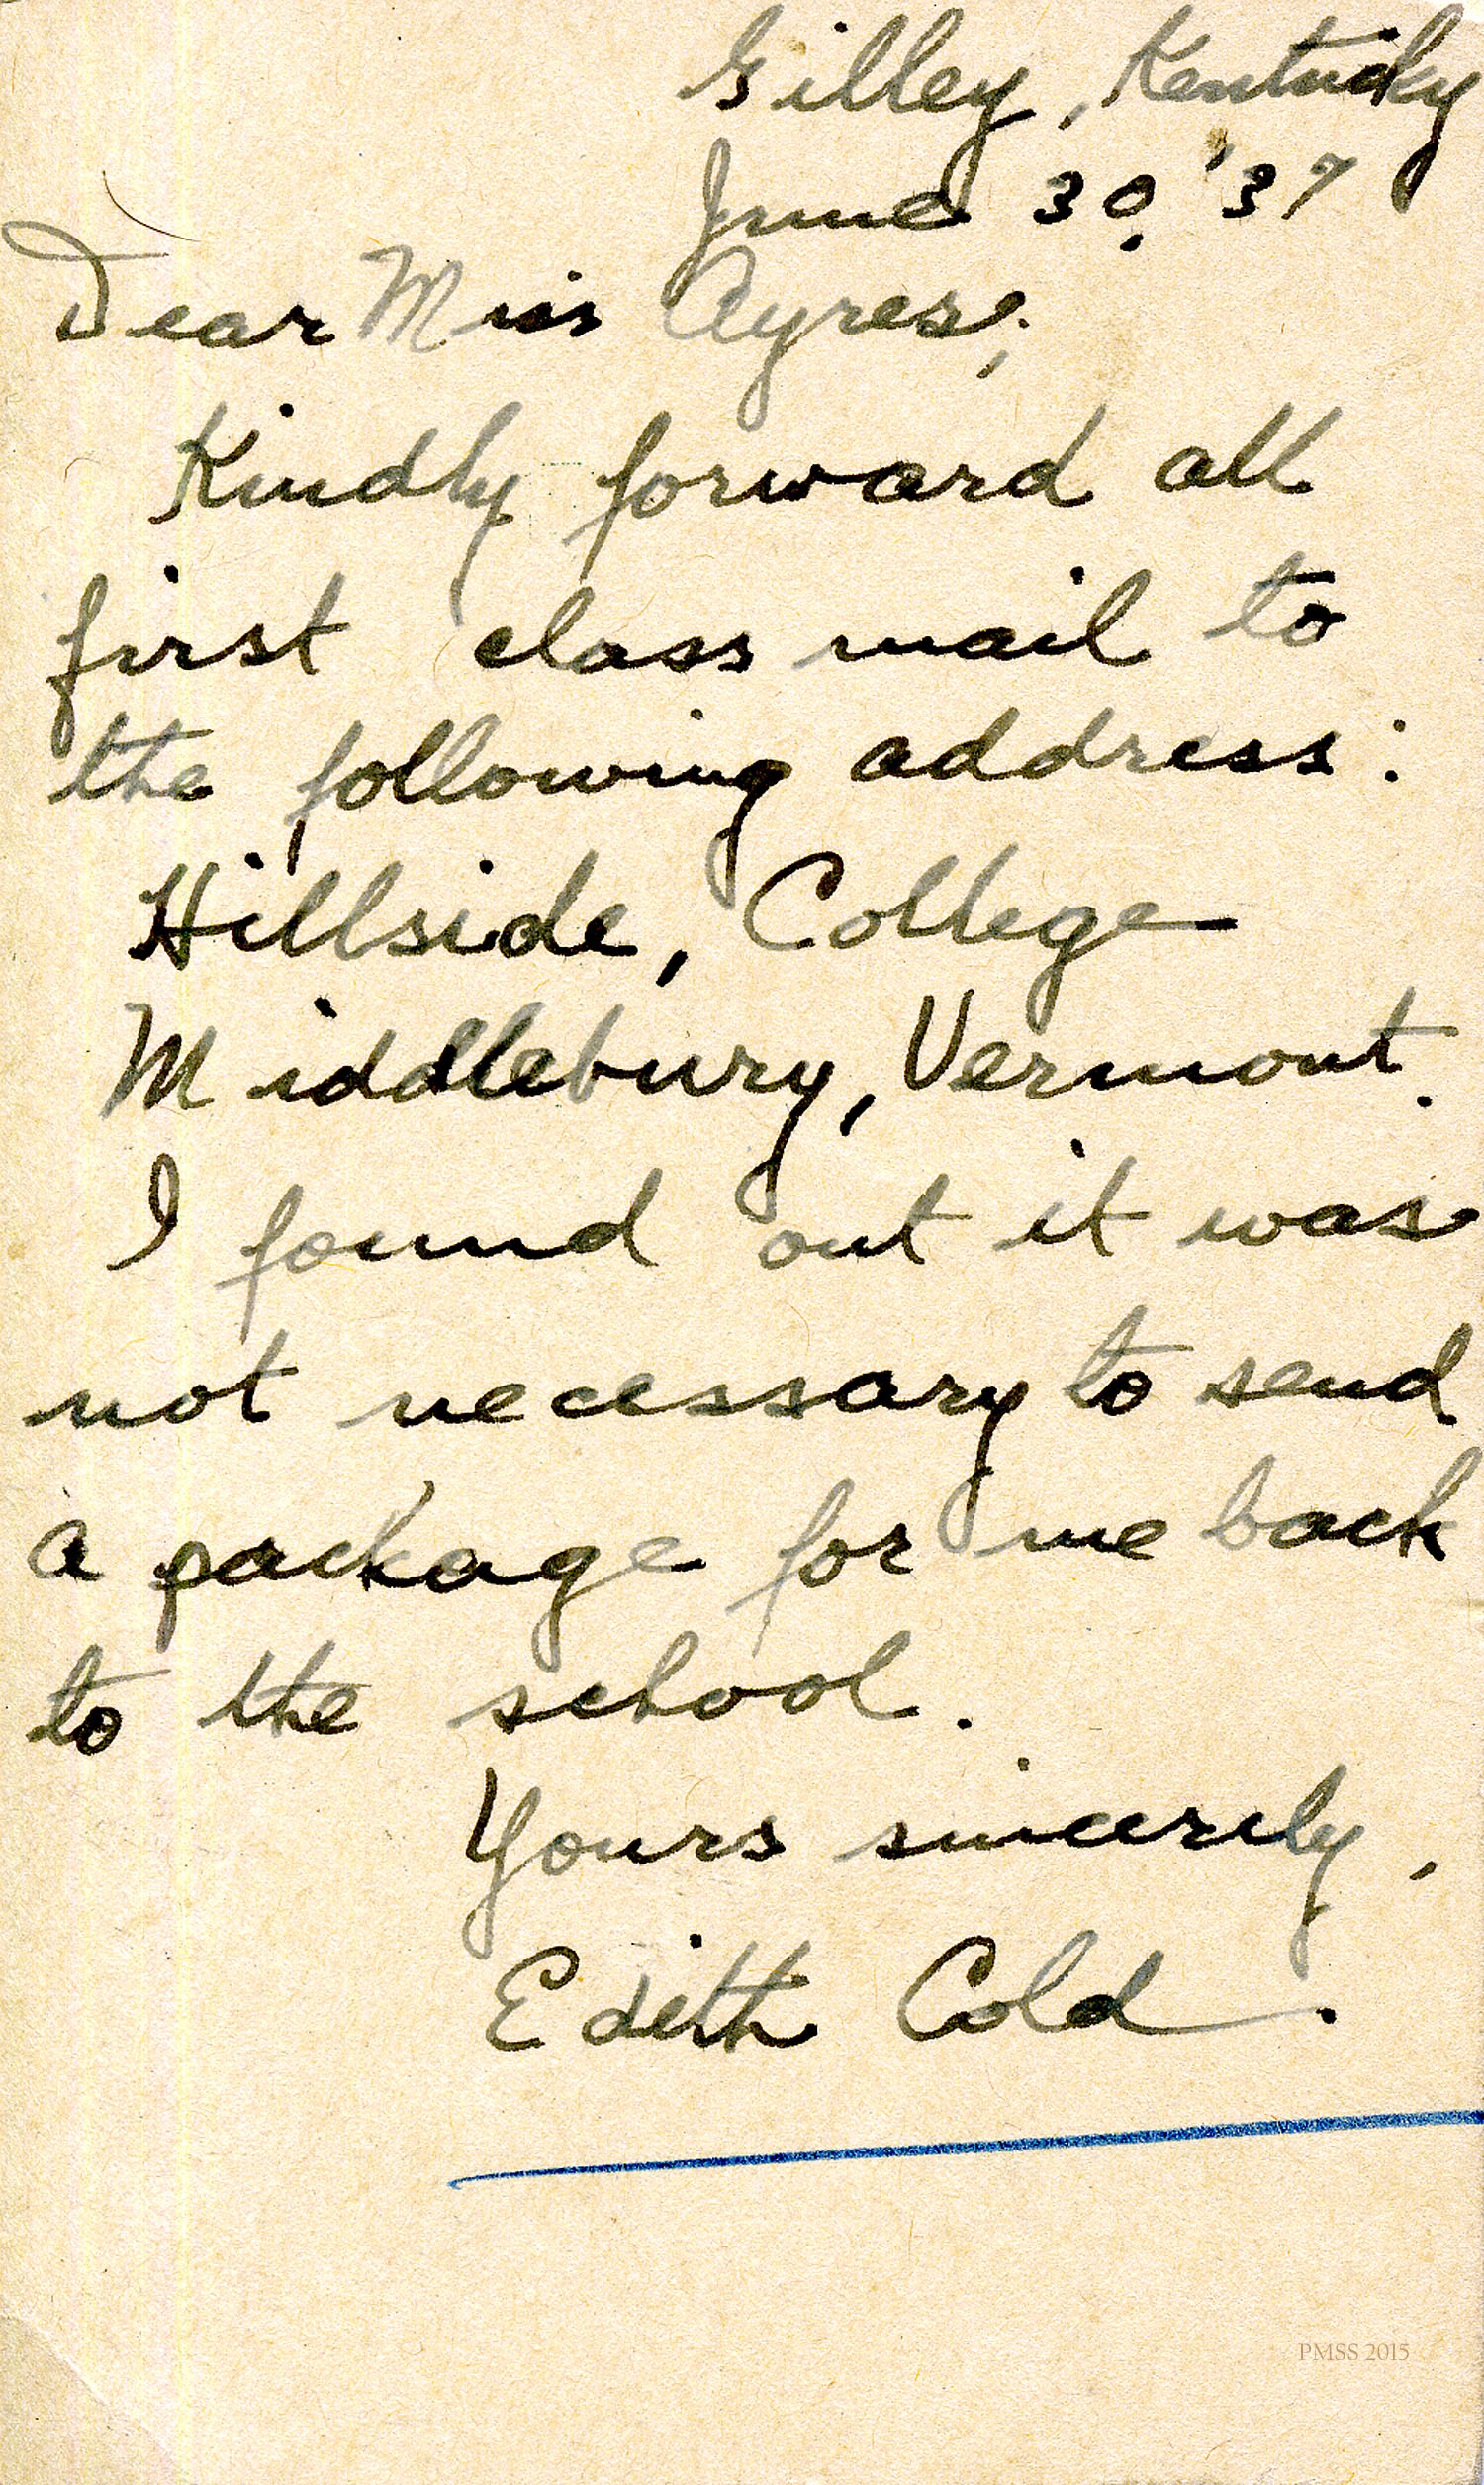 Gilley, Kentucky
June 30, '37
Dear Miss Ayres;
Kindly forward all
first class mail to
the following address:
Hillside, College
Middlebury, Vermont.
I found out it was
not necessary to send
a package for me back
to the school.
Yours sincerely,
Edith Cold.
PMSS 2015